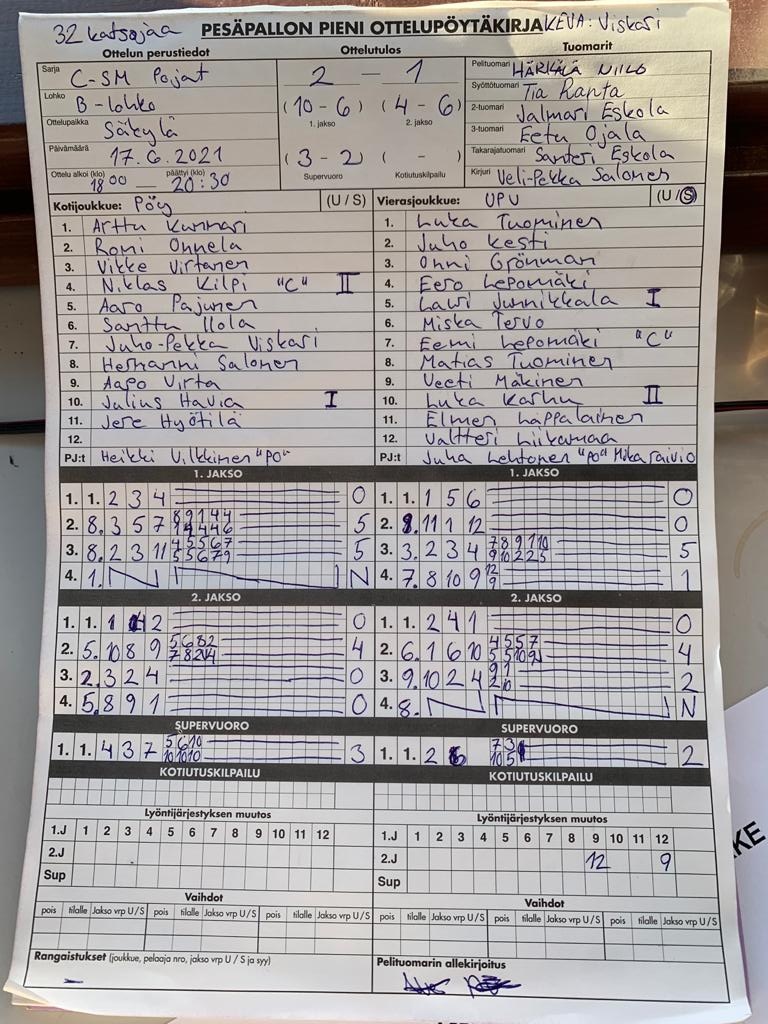 32 katsojaa PESÄPALLON PIENI OTTELUPÖYTÄKIRJA KEVA: Viskari
Ottelun perustiedot Ottelutulos Tuomarit
Sarja C-SM Pojat
Lohko B-lohko
Ottelupaikka Säkylä
Päivämäärä 17.6.2021
Ottelu alkoi (klo) 18 00 — päättyi (klo) 20:30
2 - 1
(10 - 6) (4 - 6)
1. jakso 2. jakso
(3 - 2) ( - )
Supervuoro Kotiutuskilpailu
Pelituomari HÄRKÄLÄ NIILO
Syöttötuomari Tia Ranta
2-tuomari Jalmari Eskola
3-tuomari Eetu Ojala
Takarajatuomari Santeri Eskola
Kirjuri Veli-Pekka Salonen
Kotijoukkue: Pöy (U / S)
1. Arttu Kunnari
2. Romi Onnela
3. Vikke Virtanen
4. Niklas Kilpi "C" II
5. Aaro Pajunen
6. Santtu Ilola
7. Juho-Pekka Viskari
8. Hermanni Salonen
9. Aapo Virta
10. Julius Havia I
11. Jere Hyötilä
12.
PJ:t Heikki Vilkkinen "PO"
Vierasjoukkue: UPU (U / S)
1. Luka Tuominen
2. Juho Kesti
3. Onni Grönman
4. Eero Lepomäki
5. Lauri Junnikkala I
6. Miska Tervo
7. Eemi Lepomäki "C"
8. Matias Tuominen
9. Veeti Mäkinen
10. Luka Karhu II
11. Elmer Lappalainen
12. Valtteri Liikamaa
PJ:t Juha Lehtonen "PO" Mika Raivio
1. JAKSO
1. 1. 2 3 4 0
2. 8. 3 5 7 5
3. 8. 2 3 11 4 5 5 6 7 5
5 5 6 7 9
4. 1. N N
1. JAKSO
1. 1. 1 5 6 0
2. 8. 11 1 12 0
3. 3. 2 3 4 7 8 9 1 10 5
9 10 2 2 5
4. 7. 8 10 9 12 1
9
2. JAKSO
1. 1. 1 2 0
2. 5. 10 8 9 5 6 8 2 4
3. 2. 3 2 4 0
4. 5. 8 9 1 0
2. JAKSO
1. 1. 2 4 1 0
2. 6. 1 6 10 4 5 5 7 4
3. 9. 10 2 4 9 1 2
2 10
4. 8. N N
SUPERVUORO
1. 1. 4 3 7 5 6 10 3
10 10 10
SUPERVUORO
1. 1. 2 6 7 3 2
10 5
KOTIUTUSKILPAILU
KOTIUTUSKILPAILU
Lyöntijärjestyksen muutos
1.J 1 2 3 4 5 6 7 8 9 10 11 12
2.J
Sup
Lyöntijärjestyksen muutos
1.J 1 2 3 4 5 6 7 8 9 10 11 12
2.J 12 9
Sup
Vaihdot
pois tilalle Jakso vrp U / S pois tilalle Jakso vrp U / S pois tilalle Jakso vrp U / S
Vaihdot
pois tilalle Jakso vrp U / S pois tilalle Jakso vrp U / S pois tilalle Jakso vrp U / S
Rangaistukset (joukkue, pelaaja nro, jakso vrp U / S ja syy)
—
Pelituomarin allekirjoitus
KE